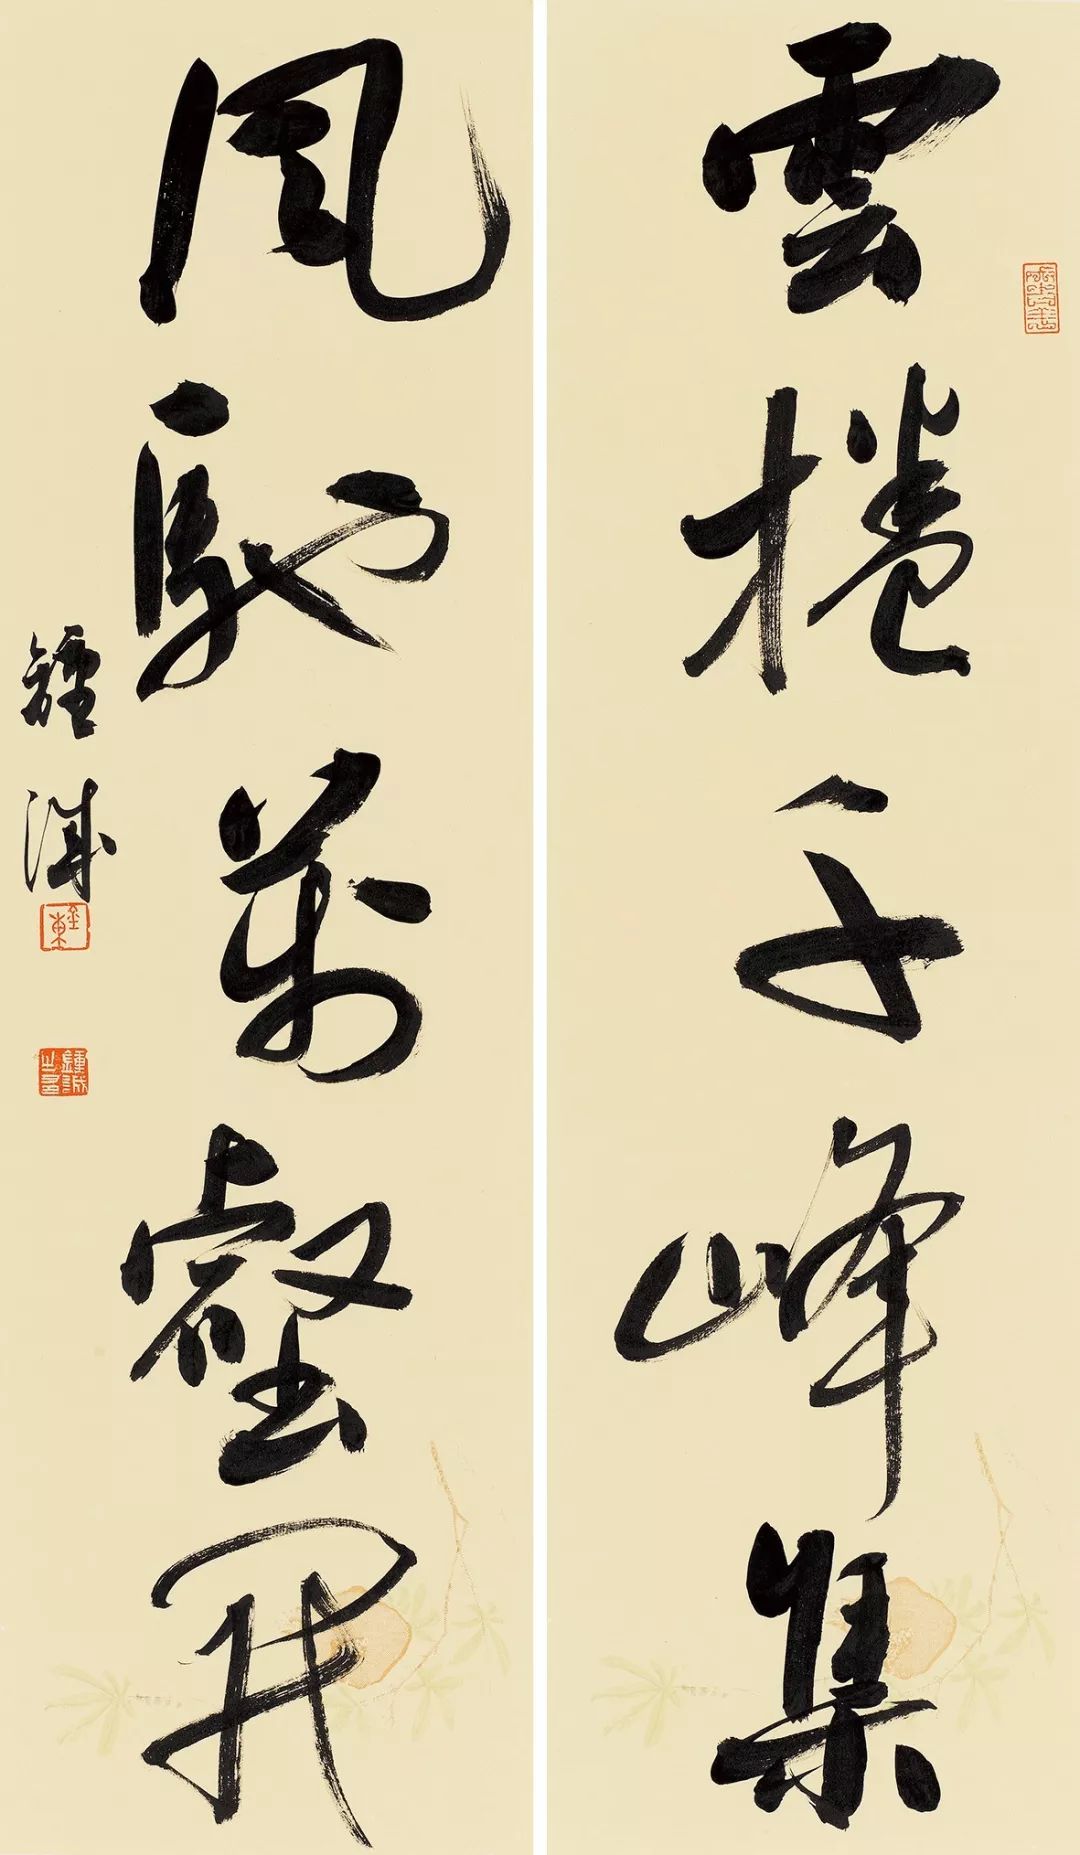 雲捲千峰集
風馳萬壑開
鍾誠